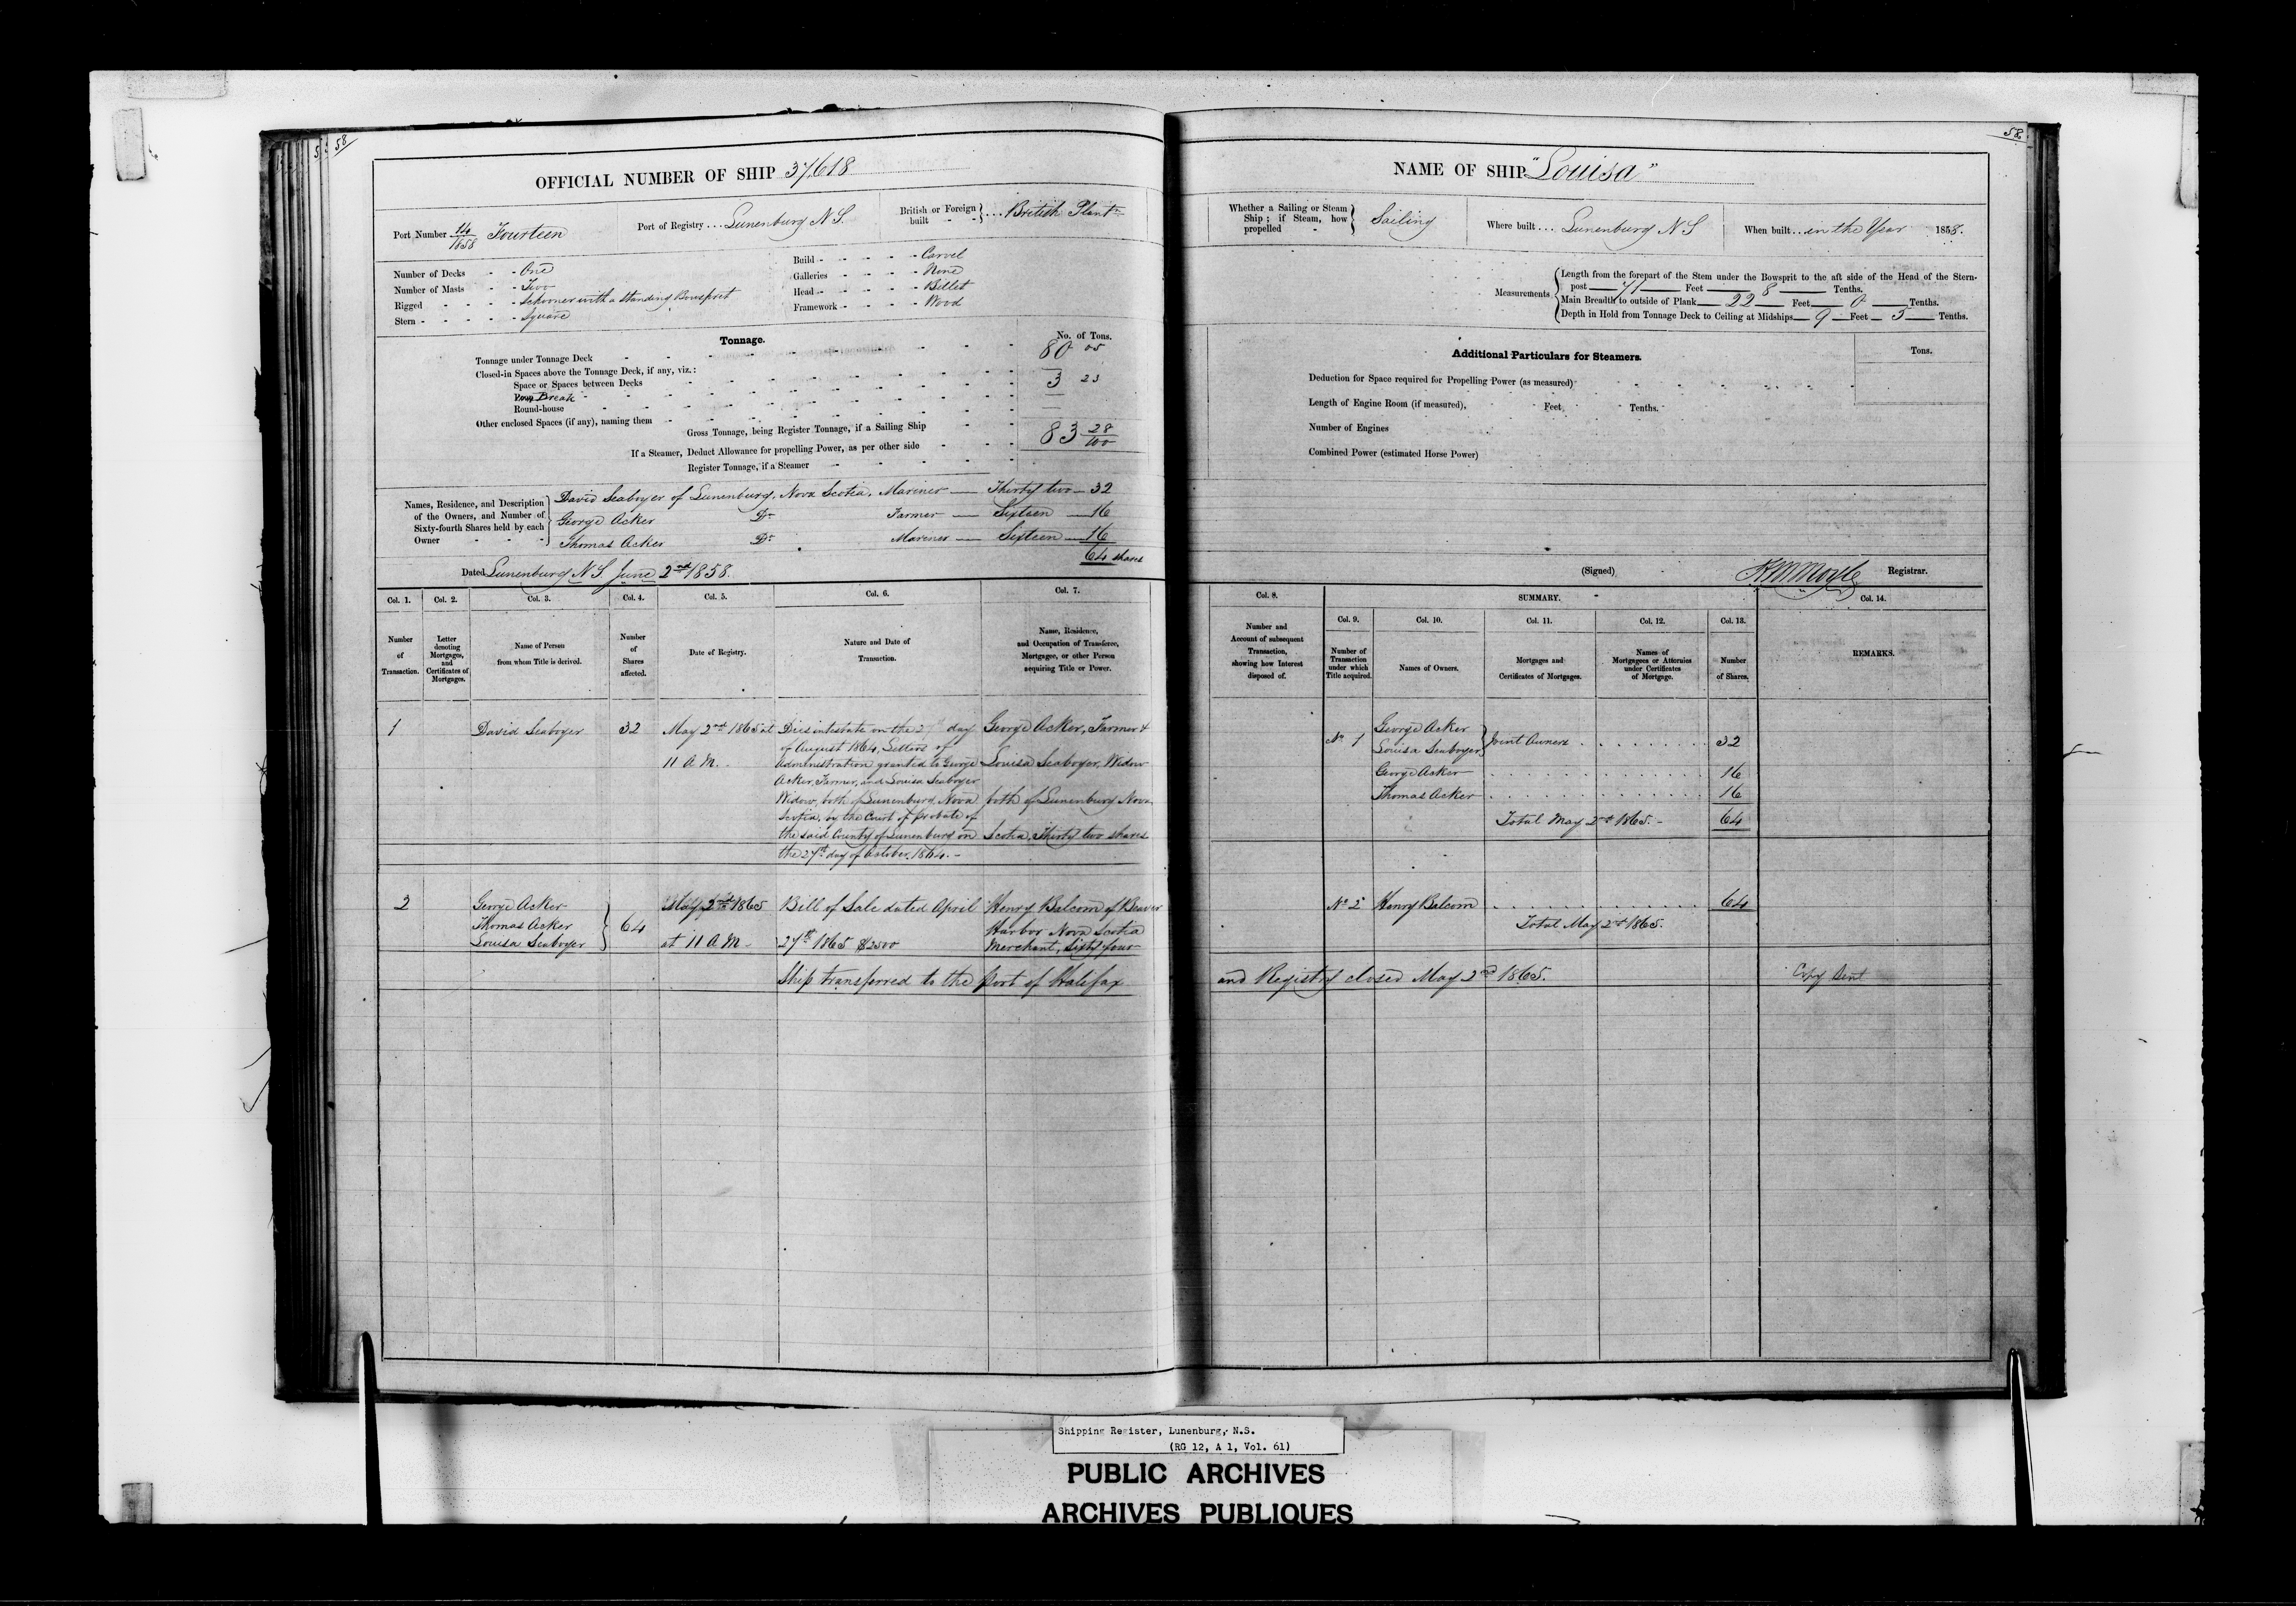 58
OFFICIAL NUMBER OF SHIP 37,618
Port Number 14/1858 Fourteen
Port of Registry . . . Lunenburg N.S.
British or Foreign built . . . British Plantn
Number of Decks - - One
Number of Masts - - Two
Rigged - - - - Schooner with a standing Bowsprit
Stern - - - - - Square
Build - - - - - Carvel
Galleries - - - - None
Head - - - - - Billet
Framework - - - - Wood
Tonnage.
No. of Tons.
Tonnage under Tonnage Deck 80 05
Closed-in Spaces above the Tonnage Deck, if any, viz.:
Space or Spaces between Decks 3 23
Break
Round-house
Other enclosed Spaces (if any), naming them
Gross Tonnage, being Register Tonnage, if a Sailing Ship 83 28/100
If a Steamer, Deduct Allowance for propelling Power, as per other side
Register Tonnage, if a Steamer
Names, Residence, and Description of the Owners, and Number of Sixty-fourth Shares held by each Owner
David Seaboyer of Lunenburg, Nova Scotia, Mariner — Thirty two — 32
George Acker Do Farmer — Sixteen — 16
Thomas Acker Do Mariner — Sixteen — 16
64 shares
Dated Lunenburg N.S. June 2nd 1858.
Col. 1. Col. 2. Col. 3. Col. 4. Col. 5. Col. 6. Col. 7.
Number of Transaction.
Letter denoting Mortgages, and Certificates of Mortgages.
Name of Person from whom Title is derived.
Number of Shares affected.
Date of Registry.
Nature and Date of Transaction.
Name, Residence, and Occupation of Transferee, Mortgagee, or other Person acquiring Title or Power.
1 David Seaboyer 32 May 2nd 1865 at
11 A.M.
Dies intestate on the day
of August 1864, Letters of
Administration granted to George
Acker, Farmer, and Louisa Seaboyer
Widow, both of Lunenburg, Nova
Scotia, by the Court of Probate of
the said County of Lunenburg on
the 27th day of October, 1864. -
George Acker, Farmer &
Louisa Seaboyer, Widow
both of Lunenburg Nova
Scotia, Thirty two shares
2 George Acker
Thomas Acker
Louisa Seaboyer
64
May 2nd 1865
at 11 A.M.
Bill of Sale dated April
27th 1865 $2500
Henry Balcom of Beaver
Harbor Nova Scotia
Merchant, Sixty four
Ship transferred to the port of Halifax
58
NAME OF SHIP "Louisa"
Whether a Sailing or Steam Ship; if Steam, how propelled - Sailing
Where built . . . Lunenburg N S
When built . . in the Year 1858.
Measurements
Length from the forepart of the Stem under the Bowsprit to the aft side of the Head of the Stern-
post 71 Feet 8 Tenths.
Main Breadth to outside of Plank 22 Feet 0 Tenths.
Depth in Hold from Tonnage Deck to Ceiling at Midships 9 Feet 5 Tenths.
Additional Particulars for Steamers.
Tons.
Deduction for Space required for Propelling Power (as measured)
Length of Engine Room (if measured), Feet, Tenths.
Number of Engines
Combined Power (estimated Horse Power)
(Signed) Registrar.
Col. 8. SUMMARY. Col. 14.
Col. 9. Col. 10. Col. 11. Col. 12. Col. 13.
Number and Account of subsequent Transaction, showing how Interest disposed of.
Number of Transaction under which Title acquired.
Names of Owners.
Mortgages and Certificates of Mortgages.
Names of Mortgagees or Attornies under Certificates of Mortgage.
Number of Shares.
REMARKS.
No 1 George Acker
Louisa Seaboyer
Joint Owners . . . . . . . . 32
George Acker . . . . . . . . 16
Thomas Acker . . . . . . . . 16
Total May 2nd 1865. - 64
No 2 Henry Balcom . . . . . . . . 64
Total May 2nd 1865.
and Registry closed May 2nd 1865. Copy Sent
Shipping Register, Lunenburg, N.S.
(RG 12, A 1, Vol. 61)
PUBLIC ARCHIVES
ARCHIVES PUBLIQUES